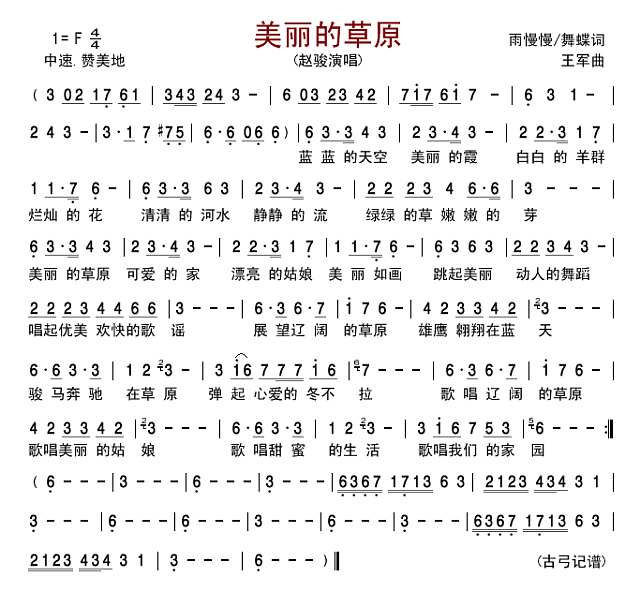 美丽的草原
1= F 4/4
雨慢慢/舞蝶词
中速.赞美地
(赵骏演唱)
王军曲
( 3 02 17 61 | 343 24 3 - | 6 03 23 42 | 717 61 7 - | 6 3 1 -
2 4 3 - | 3·1 7 #75 | 6·6 06 6 ) | 6 3·3 4 3 | 2 3·4 3 - | 2 2·3 1 7 |
蓝 蓝 的天空 美丽 的霞 白白 的 羊群
1 1·7 6 - | 6 3·3 6 3 | 2 3·4 3 - | 2 2 2 3 4 6·6 | 3 - - - |
烂灿 的 花 清清 的 河水 静静 的 流 绿绿 的草 嫩嫩 的 芽
6 3·3 4 3 | 2 3·4 3 - | 2 2·3 1 7 | 1 1·7 6 - | 6 3 6 3 | 2 2 3 4 3 |
美丽 的草原 可爱 的 家 漂亮 的姑娘 美 丽 如画 跳起美丽 动人的舞蹈
2 2 2 3 4 4 6 6 | 3 - - - | 6·3 6·7 | 1 7 6 - | 4 2 3 3 4 2 | 3 - - - |
唱起优美 欢快的歌 谣 展 望辽 阔 的草原 雄鹰 翱翔在蓝 天
6·6 3·3 | 1 2 3 - | 3 16 7 7 7 1 6 | 7 - - - | 6·3 6·7 | 1 7 6 - |
骏 马奔 驰 在草 原 弹 起 心爱的 冬不 拉 歌 唱辽 阔 的草原
4 2 3 3 4 2 | 3 - - - | 6·6 3·3 | 1 2 3 - | 3 1 6 7 5 3 | 6 - - :||
歌唱美丽 的姑 娘 歌 唱甜 蜜 的生 活 歌唱我们 的家 园
( 6 - - - | 3 - - - | 6 - - - | 3 - - - | 6367 1713 6 3 | 2123 434 3 1 |
3 - - - | 6 - - - | 3 - - - | 6 - - - | 3 - - - | 6367 1713 6 3 |
2123 434 3 1 | 3 - - - | 6 - - - ) ||
(古弓记谱)